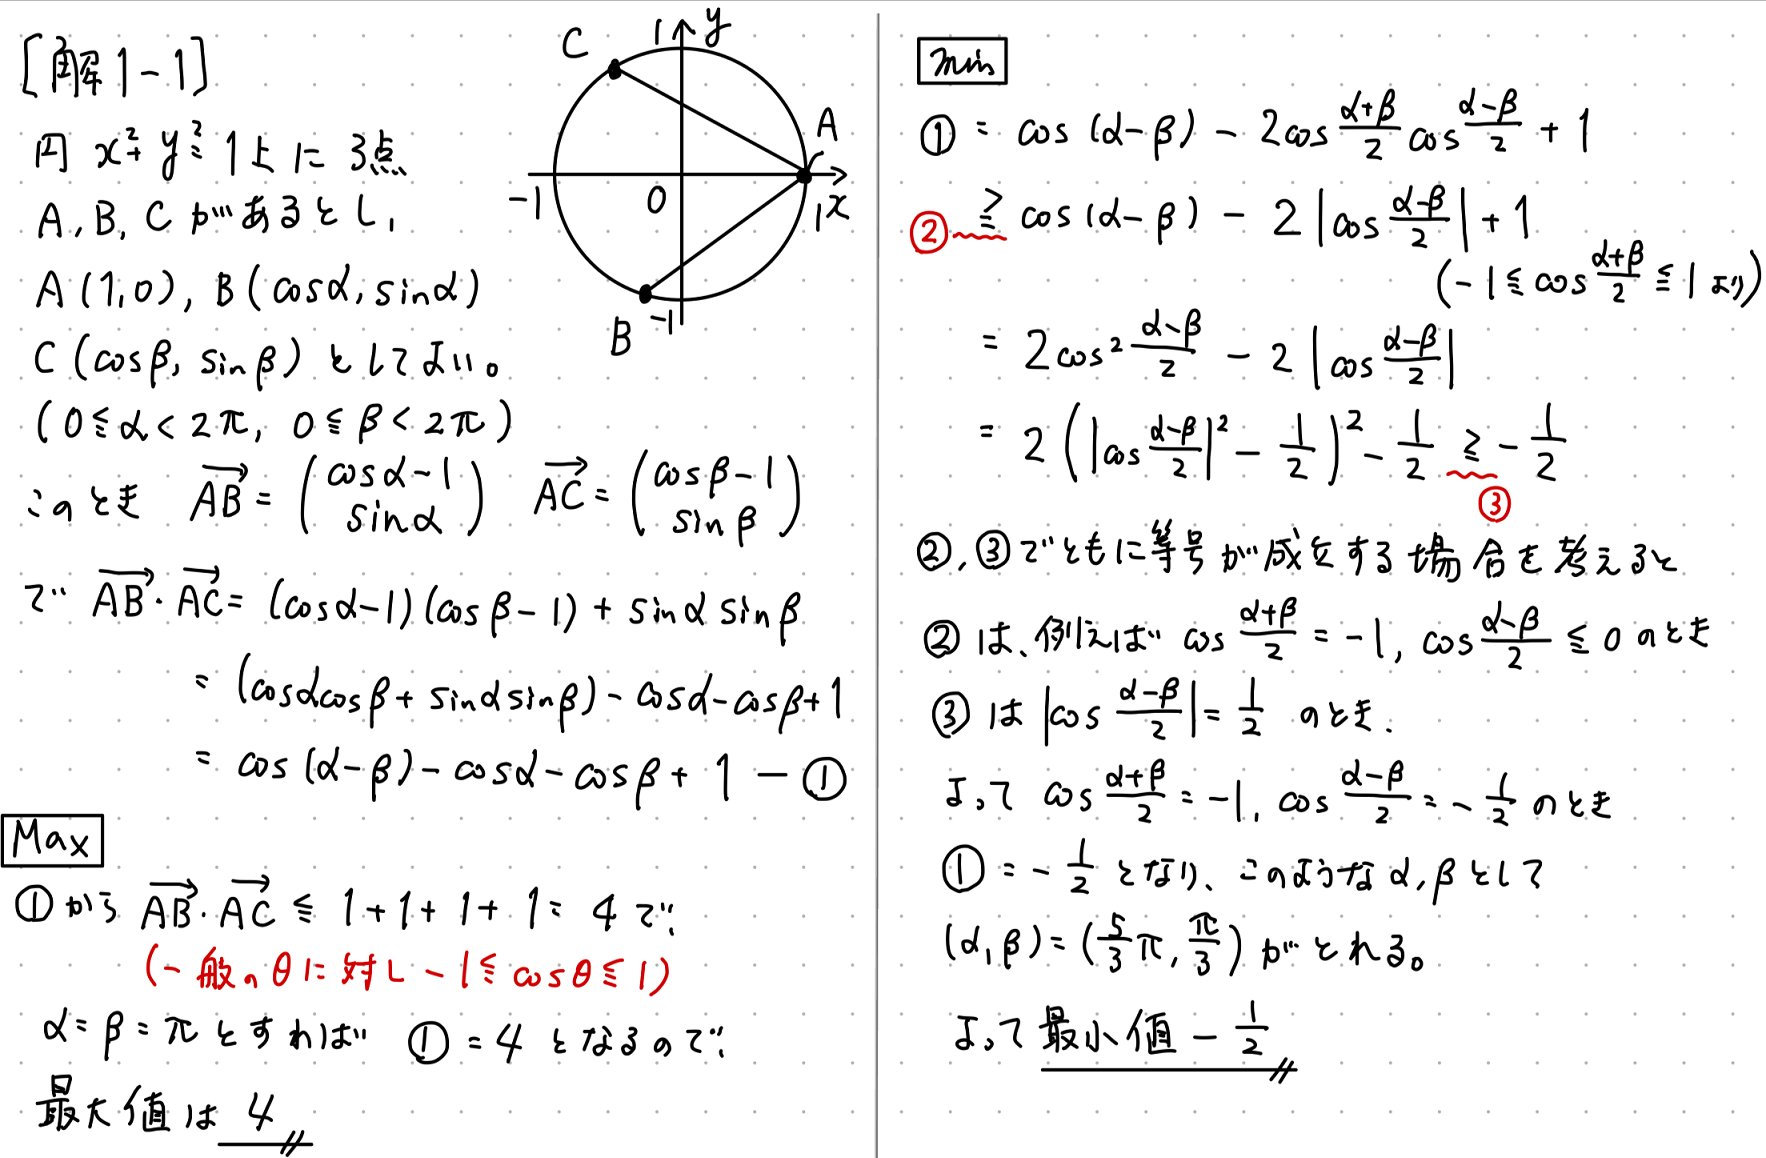 [解1-1]
円 x²+y²=1上に3点
A, B, C があるとし,
A(1,0), B(cosα, sinα)
C(cosβ, sinβ) としてよい。
(0≦α<2π, 0≦β<2π)
このとき $\overrightarrow{AB}=\begin{pmatrix}\cosα-1\\ \sinα\end{pmatrix}$ $\overrightarrow{AC}=\begin{pmatrix}\cosβ-1\\ \sinβ\end{pmatrix}$
で $\overrightarrow{AB}\cdot\overrightarrow{AC}$= (cosα-1)(cosβ-1)+sinα sinβ
= (cosαcosβ+sinαsinβ)-cosα-cosβ+1
= cos(α-β)-cosα-cosβ+1 — ①
C
1
y
A
-1
0
1
x
B
-1
Max
①から $\overrightarrow{AB}\cdot\overrightarrow{AC}$ ≦ 1+1+1+1=4で
(一般のθに対し -1≦cosθ≦1)
α=β=πとすれば ①=4となるので
最大値は 4
min
① = cos(α-β) - 2cos$\frac{α+β}{2}$cos$\frac{α-β}{2}$+1
② ≧ cos(α-β) - 2|cos$\frac{α-β}{2}$|+1
(-1≦cos$\frac{α+β}{2}$≦1より)
= 2cos²$\frac{α-β}{2}$ - 2|cos$\frac{α-β}{2}$|
= 2(|cos$\frac{α-β}{2}$|²-$\frac{1}{2}$)²-$\frac{1}{2}$ ≧ -$\frac{1}{2}$
③
②,③でともに等号が成立する場合を考えると
②は、例えば cos$\frac{α+β}{2}$=-1, cos$\frac{α-β}{2}$≦0のとき
③は |cos$\frac{α-β}{2}$|=$\frac{1}{2}$ のとき.
よって cos$\frac{α+β}{2}$=-1, cos$\frac{α-β}{2}$=-$\frac{1}{2}$のとき
①=-$\frac{1}{2}$となり、このようなα,βとして
(α,β)=($\frac{5}{3}$π,$\frac{π}{3}$)がとれる。
よって最小値-$\frac{1}{2}$